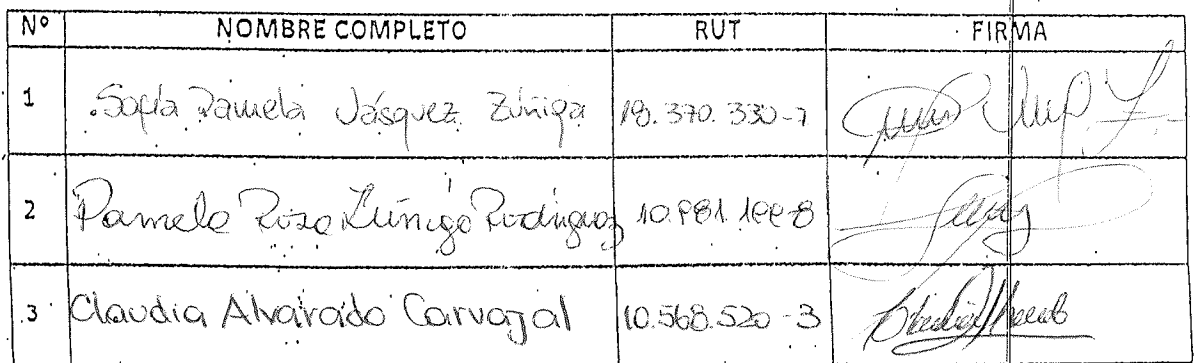 Nº NOMBRE COMPLETO RUT FIRMA
1 Sofía Pamela Vásquez Zúñiga 19.370.330-7
2 Pamela Rosa Zúñiga Rodríguez
3 Claudia Alvarado Carvajal 10.568.520-3